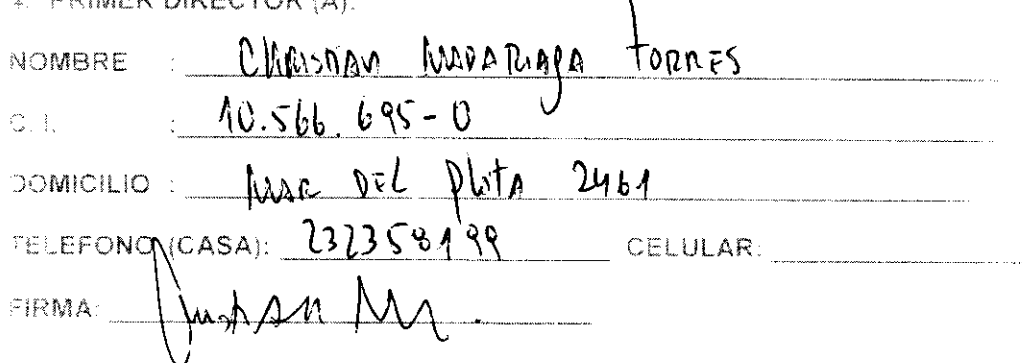 4. PRIMER DIRECTOR (A):
NOMBRE : CHRISTIAN MADARIAGA TORRES
C. I. : 10.566.695-0
DOMICILIO : MAR DEL PLATA 2461
TELEFONO (CASA): 232358199 CELULAR:
FIRMA: